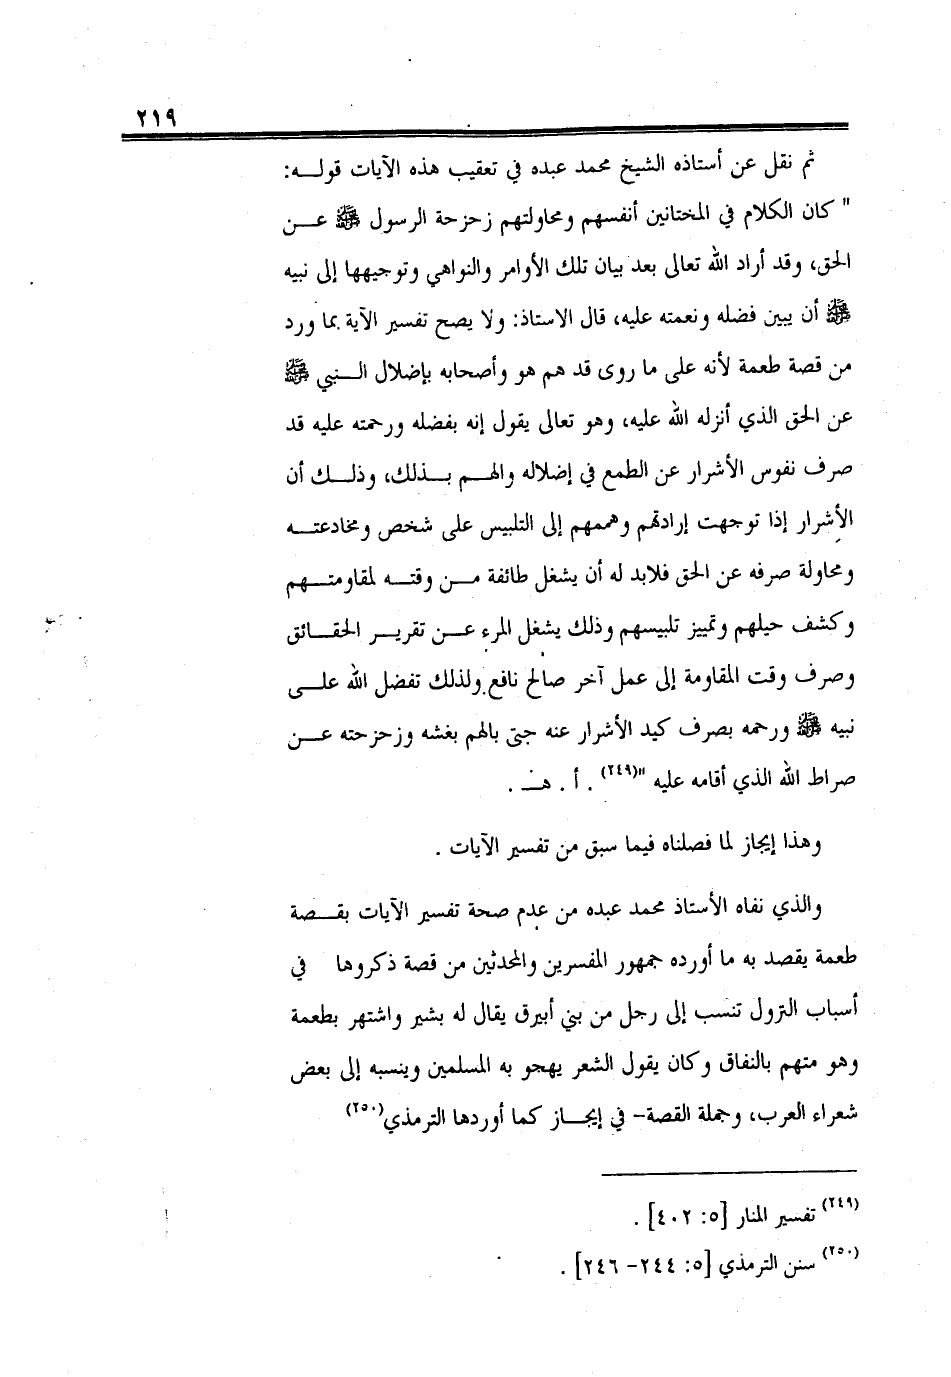 ٢١٩
ثم نقل عن أستاذه الشيخ محمد عبده في تعقيب هذه الآيات قولـــه:
" كان الكلام في المختانين أنفسهم ومحاولتهم زحزحة الرسول ﷺ عـــن
الحق، وقد أراد الله تعالى بعد بيان تلك الأوامر والنواهي وتوجيهها إلى نبيه
ﷺ أن يبين فضله ونعمته عليه، قال الاستاذ: ولا يصح تفسير الآية بما ورد
من قصة طعمة لأنه على ما روى قد هم هو وأصحابه بإضلال الـــنبي ﷺ
عن الحق الذي أنزله الله عليه، وهو تعالى يقول إنه بفضله ورحمته عليه قد
صرف نفوس الأشرار عن الطمع في إضلاله والهـــم بـــذلك، وذلـــك أن
الأشرار إذا توجهت إرادتهم وهممهم إلى التلبيس على شخص ومخادعتـــه
ومحاولة صرفه عن الحق فلابد له أن يشغل طائفة مـــن وقتـــه لمقاومتـــهم
وكشف حيلهم وتمييز تلبيسهم وذلك يشغل المرء عـــن تقريـــر الحقـــائق
وصرف وقت المقاومة إلى عمل آخر صالح نافع ولذلك تفضل الله علـــى
نبيه ﷺ ورحمه بصرف كيد الأشرار عنه حتى بالهم بغشه وزحزحته عـــن
صراط الله الذي أقامه عليه "(٢٤٩) . أ . هـــ .
وهذا إيجاز لما فصلناه فيما سبق من تفسير الآيات .
والذي نفاه الأستاذ محمد عبده من عدم صحة تفسير الآيات بقـــصة
طعمة يقصد به ما أورده جمهور المفسرين والمحدثين من قصة ذكروها في
أسباب النزول تنسب إلى رجل من بني أبيرق يقال له بشير واشتهر بطعمة
وهو متهم بالنفاق وكان يقول الشعر يهجو به المسلمين وينسبه إلى بعض
شعراء العرب، وجملة القصة- في إيجـــاز كما أوردها الترمذي(٢٥٠)
(٢٤٩) تفسير المنار [٥: ٤٠٢] .
(٢٥٠) سنن الترمذي [٥: ٢٤٤- ٢٤٦] .